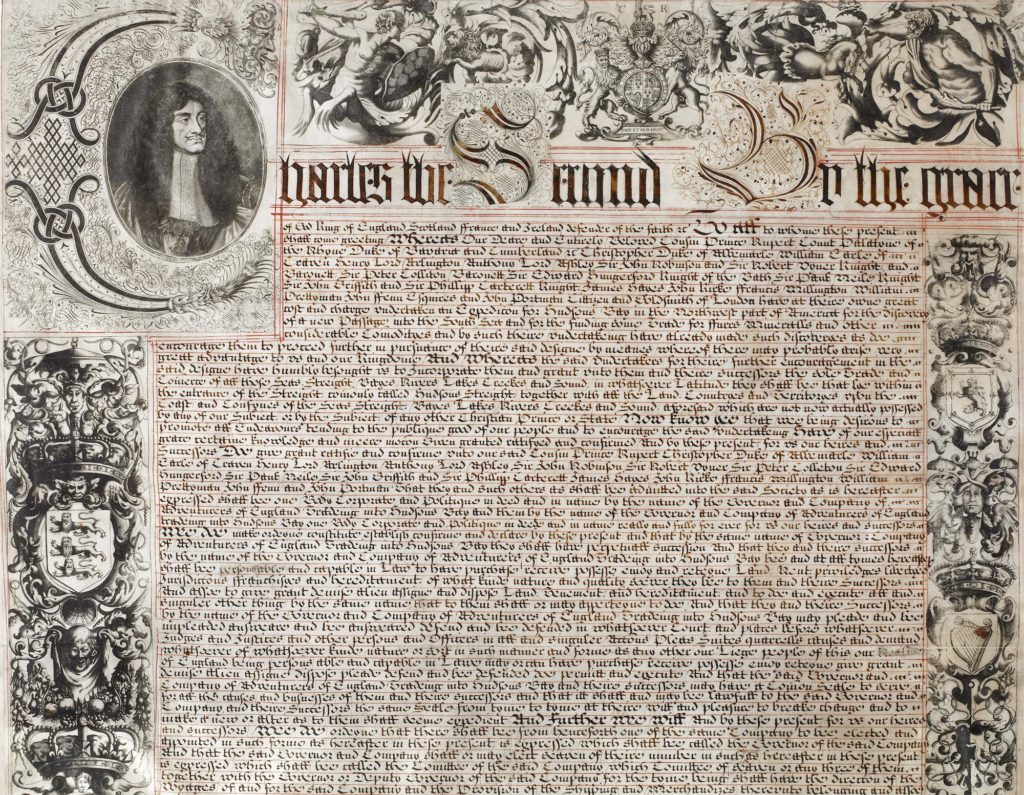 C R
DIEV ET MON DROIT
Charles the Second By the grace
of God King of England Scotland ffrance and Ireland defender of the faith &c To all to whome these present
shall come greeting Whereas Our Deare and Entirely Beloved Cousin Prince Rupert Count Palatyne of
the Rhyne Duke of Bavaria and Cumberland &c Christopher Duke of Albemarle William Earle of
Craven Henry Lord Arlington Anthony Lord Ashley Sir John Robinson and Sir Robert Vyner Knight and
Baronett Sir Peter Colliton Baronett Sir Edward Hungerford Knight of the Bath Sir Paul Neile Knight
Sir John Griffith and Sir Phillipp Carterett Knight James Hayes John Kirke ffrancis Millington William
Prettyman John ffenn Esquires and John Portman Cittizen and Goldsmith of London have at theire owne great
cost and charge undertaken an Expedicon for Hudsons Bay in the Northwest part of America for the Discovery
of a new Passage into the South Sea and for the finding some Trade for ffurrs Mineralls and other
considerable Comodityes and by such theire undertaking have already made such discoveryes as doe
encourage them to proceed further in pursuance of theire said designe by meanes whereof there may probably arise very
great advantage to us and our Kingdome And Whereas the said Undertakers for theire further encouragement in the
said designe have humbly besought us to Incorporate them and grant unto them and theire successors the sole Trade and
Comerce of all those Seas Streight Bayes Rivers Lakes Creekes and Sound in whatsoever Latitude they shall bee that lye within
the entrance of the Streight comonly called Hudsons Streight together with all the Land Countryes and Territoryes upon the
Coast and Confynes of the Seas Streight Bayes Lakes Rivers Creekes and Sound aforesaid which are not now actually possessed
by any of our Subject or by the Subject of any other Christian Prince or State Now know yee that wee being desirous to
promote all Endeavours tending to the publique good of our people and to encourage the said undertaking Have of our especiall
grace certaine knowledge and meere motion Given granted ratifyed and confirmed And by these present for us our heires and
successors Doe give grant ratifie and confirme unto our said Cousin Prince Rupert Christopher Duke of Albemarle William
Earle of Craven Henry Lord Arlington Anthony Lord Ashley Sir John Robinson Sir Robert Vyner Sir Peter Colleton Sir Edward
Hungerford Sir Paul Neile Sir John Griffith and Sir Phillipp Carterett James Hayes John Kirke ffrancis Millington William
Prettyman John ffenn and John Portman That they and such others as shall bee admitted into the said Society as is hereafter
expressed shall bee one Body Corporate and Politique in deed and in name by the name of the Governor and Company of
Adventurers of England Tradeing into Hudsons Bay and them by the name of the Governor and Company of Adventurers of England
Tradeing into Hudsons Bay one Body Corporate and Politique in deede and in name really and fully for ever for us our heires and successors
Wee Doe make ordeyne constitute establish confirme and declare by these present and that by the same name of Governor & Company
of Adventurers of England Tradeing into Hudsons Bay they shall have perpetuall succession And that they and theire successors
by the name of the Governor and Company of Adventurers of England Tradeing into Hudsons Bay bee and at all tymes hereafter
shall bee personable and capable in Law to have purchase receive possesse enjoy and reteyne Land Rent priviledges liberties
Jurisdictions ffranchises and hereditament of what kinde nature and quality soever they bee to them and theire Successors
And alsoe to give grant demise alien assigne and dispose Land Tenement and hereditament and to doe and execute all and
singuler other thing by the same name that to them shall or may apperteyne to doe And that they and theire Successors
by the name of the Governor and Company of Adventurers of England Tradeing into Hudsons Bay may pleade and bee
impleaded answeare and bee answeared defend and bee defended in whatsoever Court and place before whatsoever
Judges and Justices and other persons and Officers in all and singuler Actions Pleas Suites Quarrells causes and demand
whatsoever of whatsoever kinde nature or sort in such manner and forme as any other our Liege people of this our Realme
of England being persons able and capable in Lawe may or can have purchase receive possesse enjoy reteyne give grant
demise alien assigne dispose pleade defend and bee defended doe permitt and execute And that the said Governor and
Company of Adventurers of England Tradeing into Hudsons Bay and theire successors may have a Comon Seale to serve
for all the causes and busnesses of them and theire successors and that itt shall and may bee lawfull to the said Governor and
Company and theire Successors the same Seale from tyme to tyme at theire will and pleasure to breake change and to
make a new or alter as to them shall seeme expedient And further Wee will And by these present for us our heires
and successors Wee Doe ordeyne that there shall bee from henceforth one of the same Company to bee elected and
appointed in such forme as hereafter in these present is expressed which shall bee called the Governor of the said Company
And that the said Governor and Company shall or may elect seaven of theire number in such forme as hereafter in these present
is expressed which shall bee called the Comittee of the said Company which Comittee of seaven or any three of them
together with the Governor or Deputy Governor of the said Company for the tyme being shall have the direction of the
Voyages of and for the said Company and the Provision of the Shipping and Merchandizes thereunto belonging and alsoe